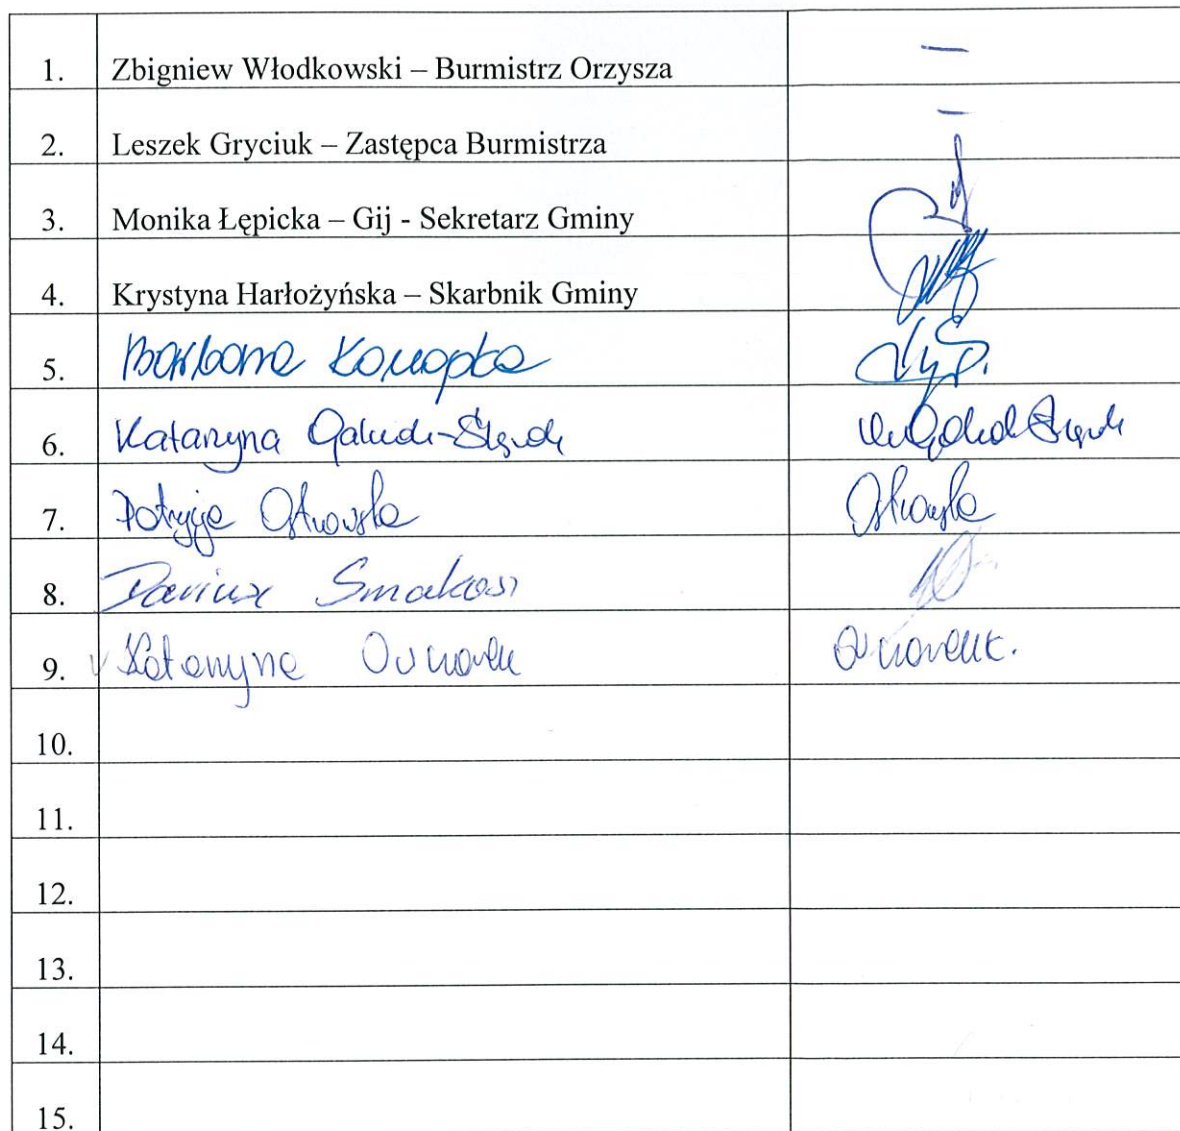 1. Zbigniew Włodkowski – Burmistrz Orzysza –
2. Leszek Gryciuk – Zastępca Burmistrza –
3. Monika Łępicka – Gij - Sekretarz Gminy
4. Krystyna Harłożyńska – Skarbnik Gminy
5. Barbara Konopka
6. Katarzyna
7. Patrycja Ostrowska
8. Dariusz
9. Katarzyna
10.
11.
12.
13.
14.
15.